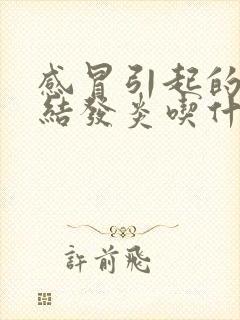 感冒引起的
結發炎喫什
許前飛